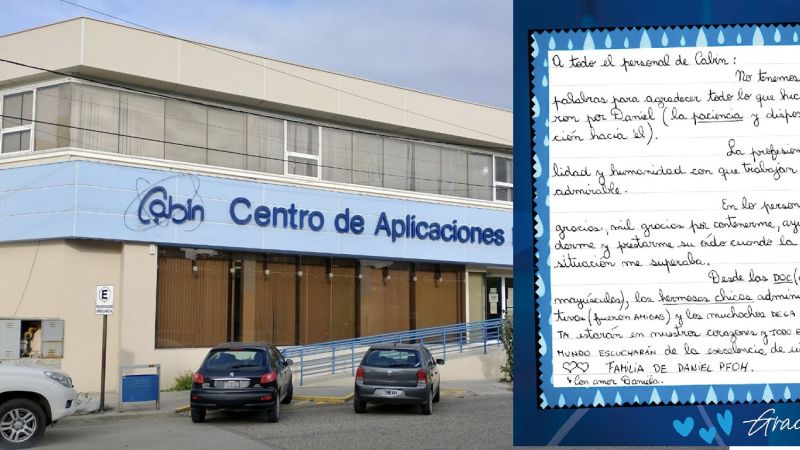 Cabin
Centro de Aplicaciones
E
A todo el personal de Cabin:
No tenemos
palabras para agradecer todo lo que hic
ron por Daniel (la paciencia y dispo
ción hacia él).
La profesion
lidad y humanidad con que trabajan
admirable.
En lo person
gracias, mil gracias por contenerme, ay
darme y prestarme su oído cuando la
situación me superaba.
Desde las DOC (
mayúsculas), las hermosas chicas admini
tivas (fueron AMIGAS) y los muchachos DE LA
TA estarán en nuestros corazones y TODO E
MUNDO ESCUCHARÁN de la excelencia de
FAMILIA DE DANIEL PFOH.
Con amor Daniela.
Grac